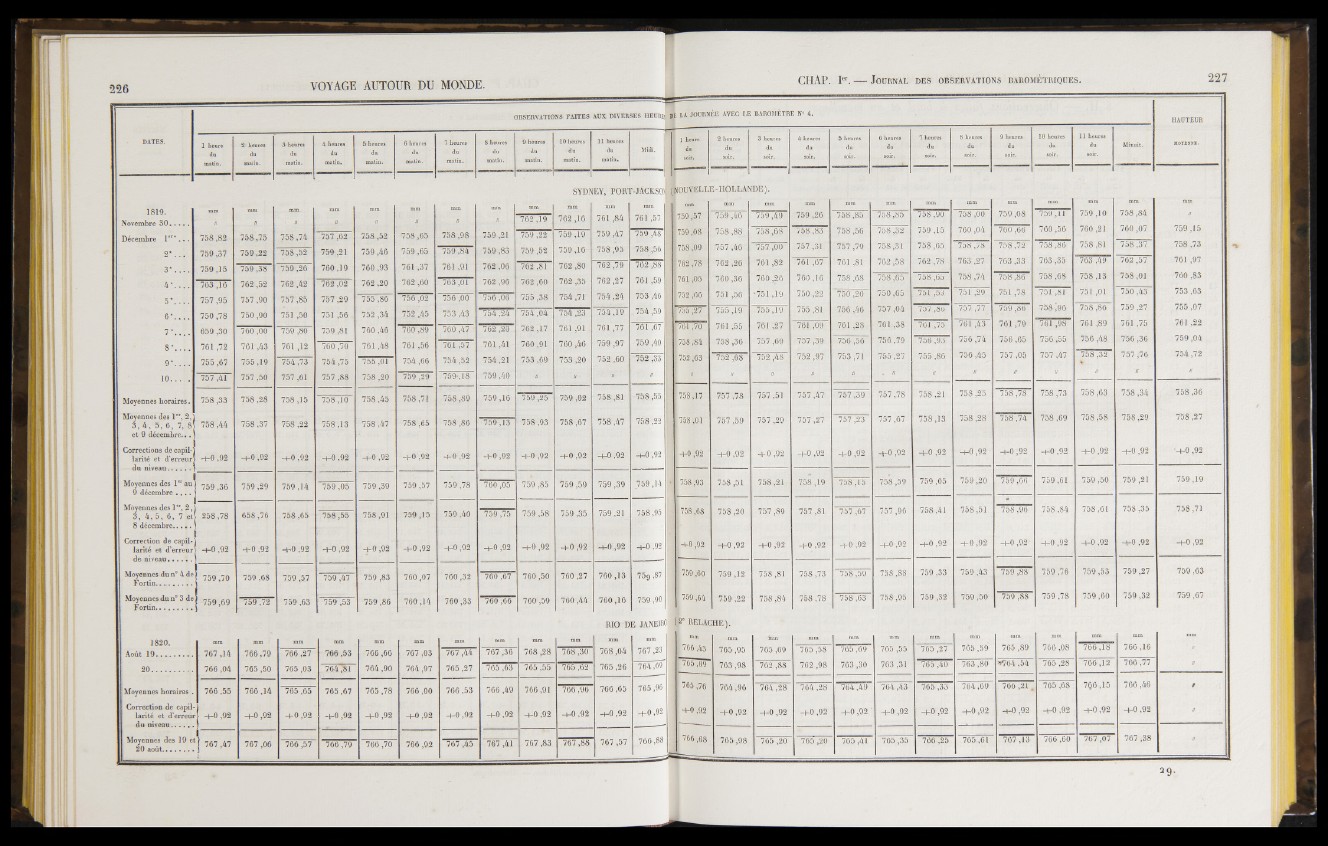 226 VOYAGE AUTOUR DU MONDE.
OBSERVATIONS FAITES AUX DIVERSES HEURES
DATES. 1 heure du matin. 2 heures du matin. 3 heures du matin. 4 heures du matin. 5 heures du matin. 6 heures du matin. 7 heures du matin. 8 heures du matin. 9 heures du matin. 10 heures du matin. 11 heures du matin. Midi.
SYDNEY, PORT-JACKSON
1819. mm mm mm mm mm mm mm mm mm mm mm mm
Novembre 30..... " " " " " " " " 762,19 762,16 761,84 761,57
Décembre 1er... 758,82 758,75 758,74 757,62 758,52 758,65 758,98 759,21 759,22 759,19 759,47 759,48
2e... 759,37 759,22 758,52 759,21 759,46 759,65 759,84 759,83 759,52 759,16 758,95 758,56
3e.... 759,15 759,38 759,26 760,19 760,93 761,37 761,91 762,06 762,81 762,80 762,79 762,88
4e.... 763,16 762,52 762,42 762,02 762,20 762,60 763,01 762,96 762,60 762,35 762,27 761,59
5e.... 757,95 757,90 757,85 757,29 755,80 756,02 756,00 756,06 755,38 754,71 754,24 753,46
6e.... 750,78 750,90 751,50 751,56 752,34 752,45 753,43 754,24 754,04 754,23 754,19 754,59
7e.... 659,30 760,00 759,80 759,81 760,46 760,89 760,47 762,20 762,17 761,91 761,77 761,67
8e.... 761,72 761,43 761,12 760,70 761,48 761,56 761,57 761,41 760,91 760,46 759,97 759,49
9e.... 755,67 755,19 754,73 754,75 755,01 754,66 754,52 754,21 753,69 753,20 752,60 752,35
10..... 757,41 757,50 757,61 757,88 758,20 759,29 759,18 759,40 " " " "
Moyennes horaires. 758,33 758,28 758,15 758,10 758,45 758,71 758,89 759,16 759,25 759,02 758,81 758,55
Moyennes des 1er, 2, 3, 4, 5, 6, 7, 8 et 9 décembre... 758,44 758,37 758,22 758,13 758,47 758,65 758,86 759,13 758,93 758,67 758,47 758,22
Corrections de capillarité et d'erreur du niveau...... +0,92 +0,92 +0,92 +0,92 +0,92 +0,92 +0,92 +0,92 +0,92 +0,92 +0,92 +0,92
Moyennes des 1er au 9 décembre.... 759,36 759,29 759,14 759,05 759,39 759,57 759,78 760,05 759,85 759,59 759,39 759,14
Moyennes des 1er, 2, 3, 4, 5, 6, 7 et 8 décembre..... 258,78 658,76 758,65 758,55 758,91 759,15 759,40 759,75 759,58 759,35 759,21 758,95
Correction de capillarité et d'erreur de niveau...... +0,92 +0,92 +0,92 +0,92 +0,92 +0,92 +0,92 +0,92 +0,92 +0,92 +0,92 +0,92
Moyennes du n° 4 de Fortin......... 759,70 759,68 759,57 759,47 759,83 760,07 760,32 760,67 760,50 760,27 760,13 759,87
Moyennes du n° 3 de Fortin......... 759,69 759,72 759,63 759,53 759,86 760,14 760,33 760,66 760,59 760,44 760,16 759,90
RIO DE JANEIRO
1820. mm mm mm mm mm mm mm mm mm mm mm mm
Août 19......... 767,14 766,79 766,27 766,53 766,66 767,03 767,44 767,36 768,28 768,30 768,04 767,23
20........... 766,04 765,50 765,03 764,81 764,90 764,97 765,27 765,63 765,55 765,62 765,26 764,69
Moyennes horaires. 766,55 766,14 765,65 765,67 765,78 766,00 766,53 766,49 766,91 766,96 766,65 765,96
Correction de capillarité et d'erreur du niveau...... +0,92 +0,92 +0,92 +0,92 +0,92 +0,92 +0,92 +0,92 +0,92 +0,92 +0,92 +0,92
Moyennes des 19 et 20 août........ 767,47 767,06 766,57 766,79 766,70 766,92 767,45 767,41 767,83 767,88 767,57 766,88
CHAP. Ier. — JOURNAL DES OBSERVATIONS BAROMÉTRIQUES. 227
DE LA JOURNÉE AVEC LE BAROMÈTRE N° 4.
1 heure du soir. 2 heures du soir. 3 heures du soir. 4 heures du soir. 5 heures du soir. 6 heures du soir. 7 heures du soir. 8 heures du soir. 9 heures du soir. 10 heures du soir. 11 heures du soir. Minuit. HAUTEUR MOYENNE.
(NOUVELLE-HOLLANDE).
mm mm mm mm mm mm mm mm mm mm mm mm mm
759,46 759,49 759,26 758,85 758,85 758,90 758,00 759,08 759,11 759,10 758,84 "
759,08 758,88 758,68 758,83 758,56 758,32 759,15 760,04 760,66 760,56 760,21 760,07 759,15
758,09 757,46 757,00 757,31 757,70 758,31 758,65 758,78 758,72 758,86 758,81 758,37 758,73
762,78 762,26 761,82 761,67 761,81 762,58 762,78 763,27 763,33 763,35 763,49 762,57 761,97
761,05 760,36 760,25 760,16 758,68 758,65 758,65 758,74 758,86 758,68 758,13 758,01 760,85
752,66 751,56 751,19 750,22 750,26 750,65 751,53 751,29 751,78 751,81 751,01 750,43 753,65
755,27 755,19 755,19 755,81 756,46 757,64 757,86 757,77 759,86 758,96 758,86 759,27 755,07
761,70 761,55 761,27 761,09 761,28 761,38 761,75 761,43 761,79 761,98 761,89 761,75 761,22
758,84 758,36 757,69 757,39 756,56 756,79 756,95 756,74 756,65 756,55 756,48 756,36 759,04
752,63 752,68 752,48 752,97 753,71 755,27 755,86 756,45 757,05 757,47 758,32 757,76 754,72
" " " " " " " " " " " " "
758,17 757,78 757,51 757,47 757,39 757,78 758,21 758,25 758,78 758,73 758,63 758,34 758,36
758,01 757,59 757,29 757,27 757,23 757,67 758,13 758,28 758,74 758,69 758,58 758,29 758,27
+0,92 +0,92 +0,92 +0,92 +0,92 +0,92 +0,92 +0,92 +0,92 +0,92 +0,92 +0,92 +0,92
758,93 758,51 758,21 758,19 758,15 758,59 759,05 759,20 759,66 759,61 759,50 759,21 759,19
758,68 758,20 757,89 757,81 757,67 757,96 758,41 758,51 758,96 758,84 758,61 758,35 758,71
+0,92 +0,92 +0,92 +0,92 +0,92 +0,92 +0,92 +0,92 +0,92 +0,92 +0,92 +0,92 +0,92
759,60 759,12 758,81 758,73 758,59 758,88 759,33 759,43 759,88 759,76 759,53 759,27 759,63
759,64 759,22 758,84 758,78 758,63 758,95 759,32 759,50 759,88 759,78 759,60 759,32 759,67
(2e RELACHE).
mm mm mm mm mm mm mm mm mm mm mm mm mm
766,45 765,95 765,69 765,58 765,69 765,55 765,27 765,59 765,89 766,08 766,18 766,16 "
765,09 763,98 762,88 762,98 763,30 763,31 765,40 763,80 764,54 765,28 766,12 766,77 "
765,76 764,96 764,28 764,28 764,49 764,43 765,33 764,69 766,21 765,68 766,15 766,46 "
+0,92 +0,92 +0,92 +0,92 +0,92 +0,92 +0,92 +0,92 +0,92 +0,92 +0,92 +0,92 "
766,68 765,98 765,20 765,20 765,41 765,35 766,25 765,61 767,13 766,60 767,07 767,38 "
29.